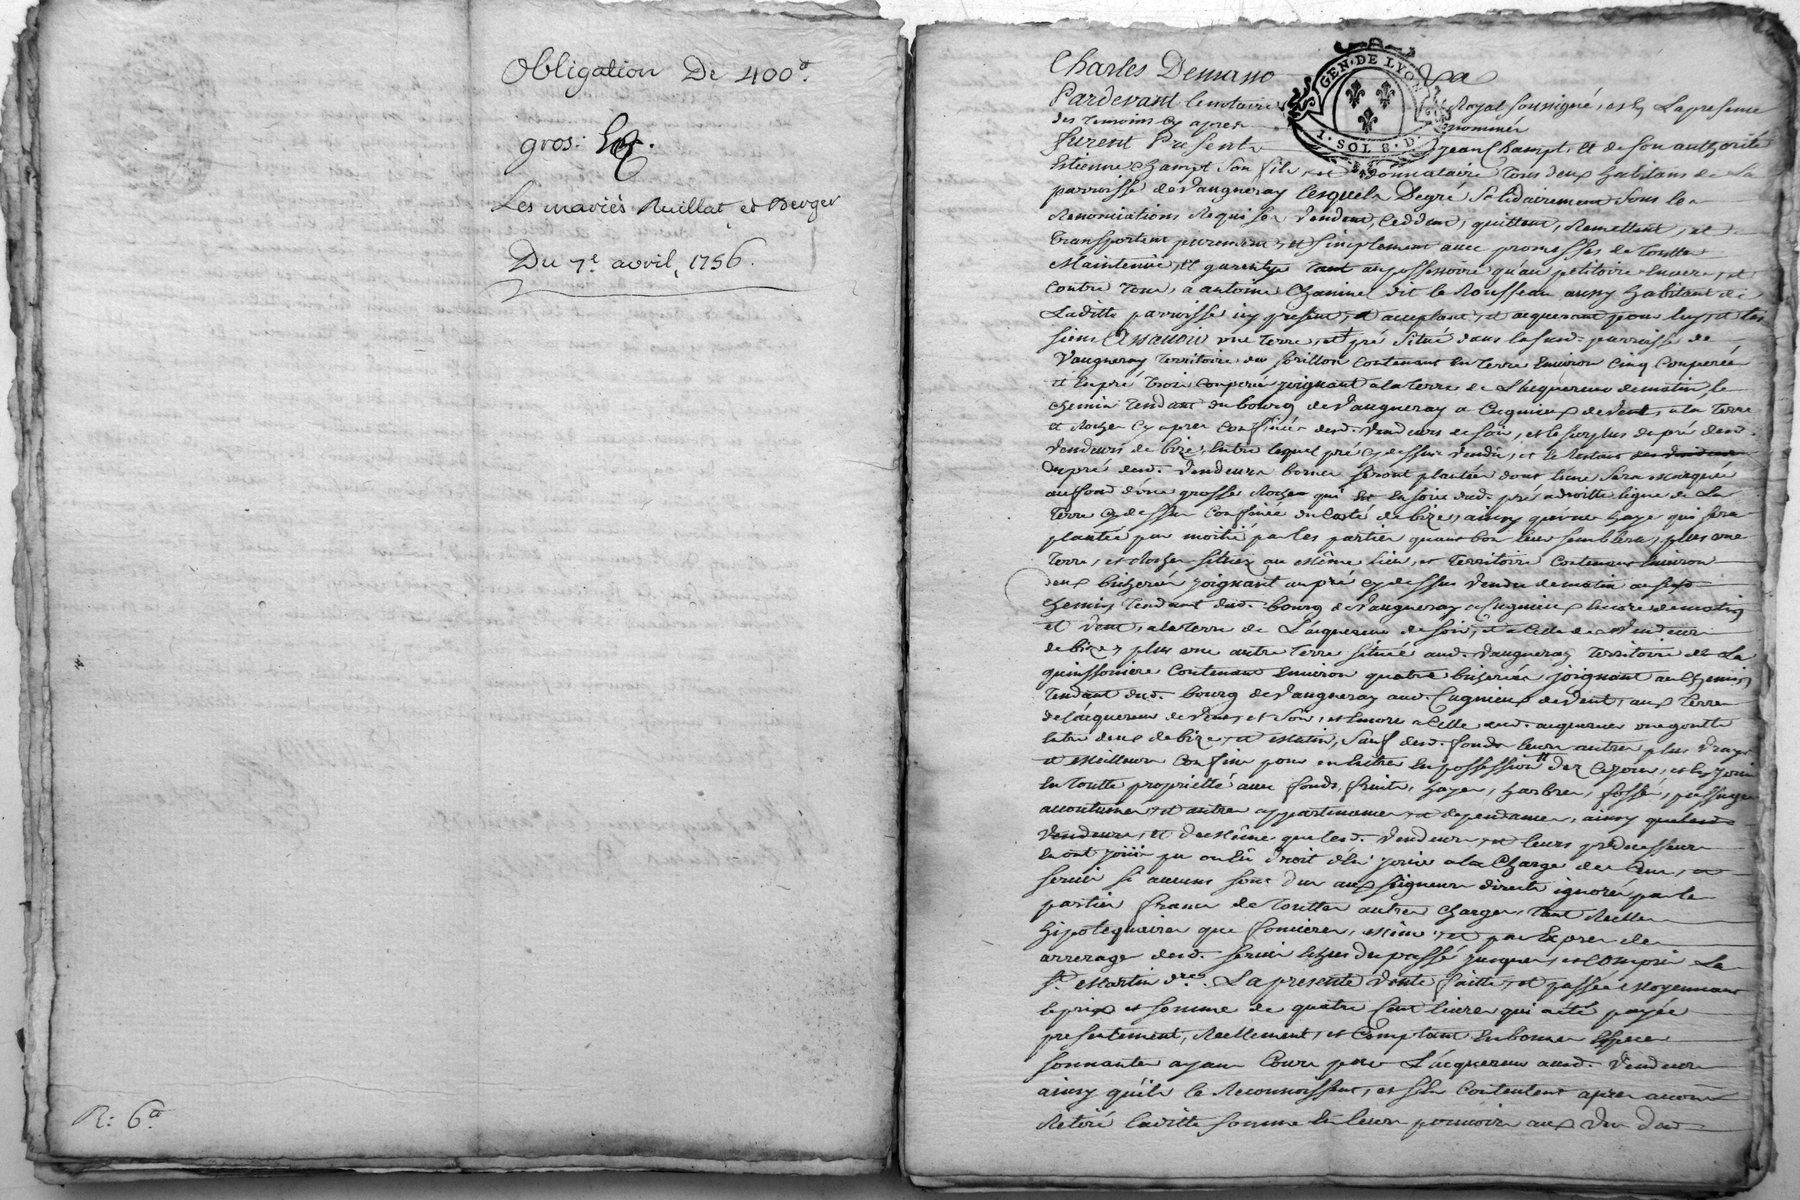 Obligation De 400#.
gros:
Les mariés Reuillat et Berger
Du 7e. avril, 1756.
R: 6#
GEN. DE LYON
1. SOL 8. D
Pardevant le notaire Royal soussigné, et en La presence
des temoins cy apres nommés
furent Presents Jean Champt, et de son authorité
Estienne Champt son fils, et donnataire tous deux habitans de La
parroisse de Vaugneray lesquels De gré solidairement sous les
Renonciations Requises Vendent, Ceddent, quittent, Remettent, et
transportent purement, et simplement avec promesses de toutte
Maintenue, et garentye tant au possessoire qu'au petitoire Envers, et
contre tous, a antoine Chaninel dit le Rousseau aussy habitant de
Laditte parroisse icy present, et acceptant, et acquerant pour luy, et les
siens Assavoir une terre, et pré Situé dans lasusd. parroisse de
Vaugneray territoire du contenant En terre Environ Cinq Couperées
et En pré trois couperées joignant a la terre de L'acquereur de matin, le
chemin tendant du bourg de Vaugneray a Cugnieux de Vent, a la terre
et Rocher Cy apres Confinés desd. Vendeurs de soir, et le surplus du pré desd.
Vendeurs de bize, Entre lequel pré cy dessus vendu, et le Restant des vendeurs
du pré desd. Vendeurs bornes seront plantées dont l'une sera Marquée
au fond d'une grosse Rocher qui est En soir dud. pré a droitte ligne de La
terre Cy dessus Confinée du Costé de bize, ainsy qu'une haye qui sera
plantée par moitié par les parties quand bon leur semblera, plus une
terre, et Rocher situés au Même lieu, et territoire Contenant Environ
deux bicherées joignant au pré cy dessus Vendu de matin
chemin tendant dud. bourg de Vaugneray a Cugnieux Encore de matin
et Vent, a la terre de L'acquereur de soir, et a Celle des Vendeurs
de bize, plus une autre terre située aud. Vaugneray territoire de La
quinssoniere Contenant Environ quatre bicherées joignant au Chemin
tendant dud. bourg de Vaugneray aud. Cugnieux de Vent, aux terres
de L'acquereur de Vent, et Soir, et Encore a Celle dud. acquereur une goutte
Entre deux de bize, et Matin, Sauf desd. fonds leurs autres plus Vrays
et Meilleurs Confins pour En Entrer En possession dez Cejour, et En jouir
En toutte proprietté avec fonds, fruits, hayes, harbres, fossés, passages
accoutumés, et autres appartenances, et dependances, ainsy que lesd.
Vendeurs, et de Même que lesd. Vendeurs, et leurs predecesseurs
En ont jouii pu ou dû droit d'En jouir a la Charge des Cens, et
servis si aucuns sont dus aux seigneurs directs ignorés par les
parties francs de touttes autres Charges, tant Reelles
hipotequaires que foncieres, Même, et par Expres des
arrerages desd. servis Echus du passé jusques, et compris La
St. Martin dre. La presente Vente faitte, et passée Moyennant
le prix et somme de quatre Cent livres qui a été payée
presentement, Reellement, et Comptant En bonnes Especes
sonnantes ayant Cours par L'acquereur auxd. Vendeurs
ainsy qu'ils le Reconnoissent, et s'En Contentent apres avoir
Retiré laditte somme En leurs pouvoirs aux Vu des